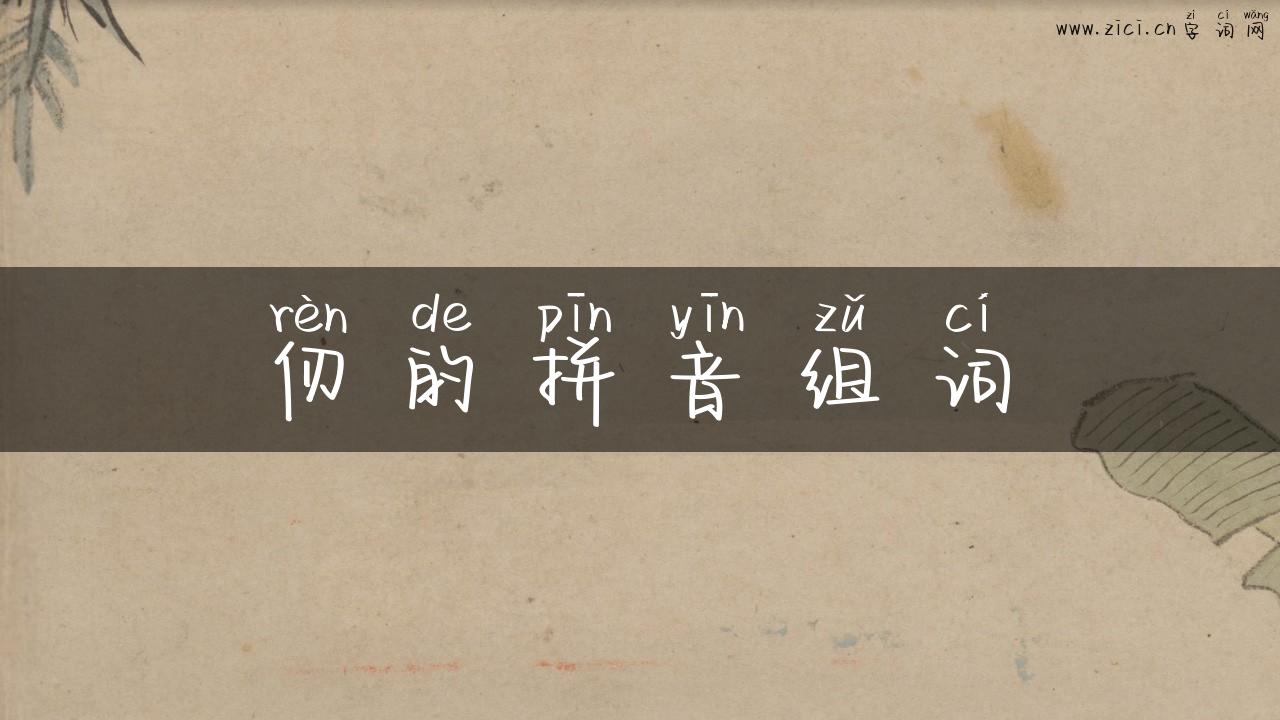 www.zici.cn zì cí wǎng 字词网
rèn de pīn yīn zǔ cí
仞的拼音组词